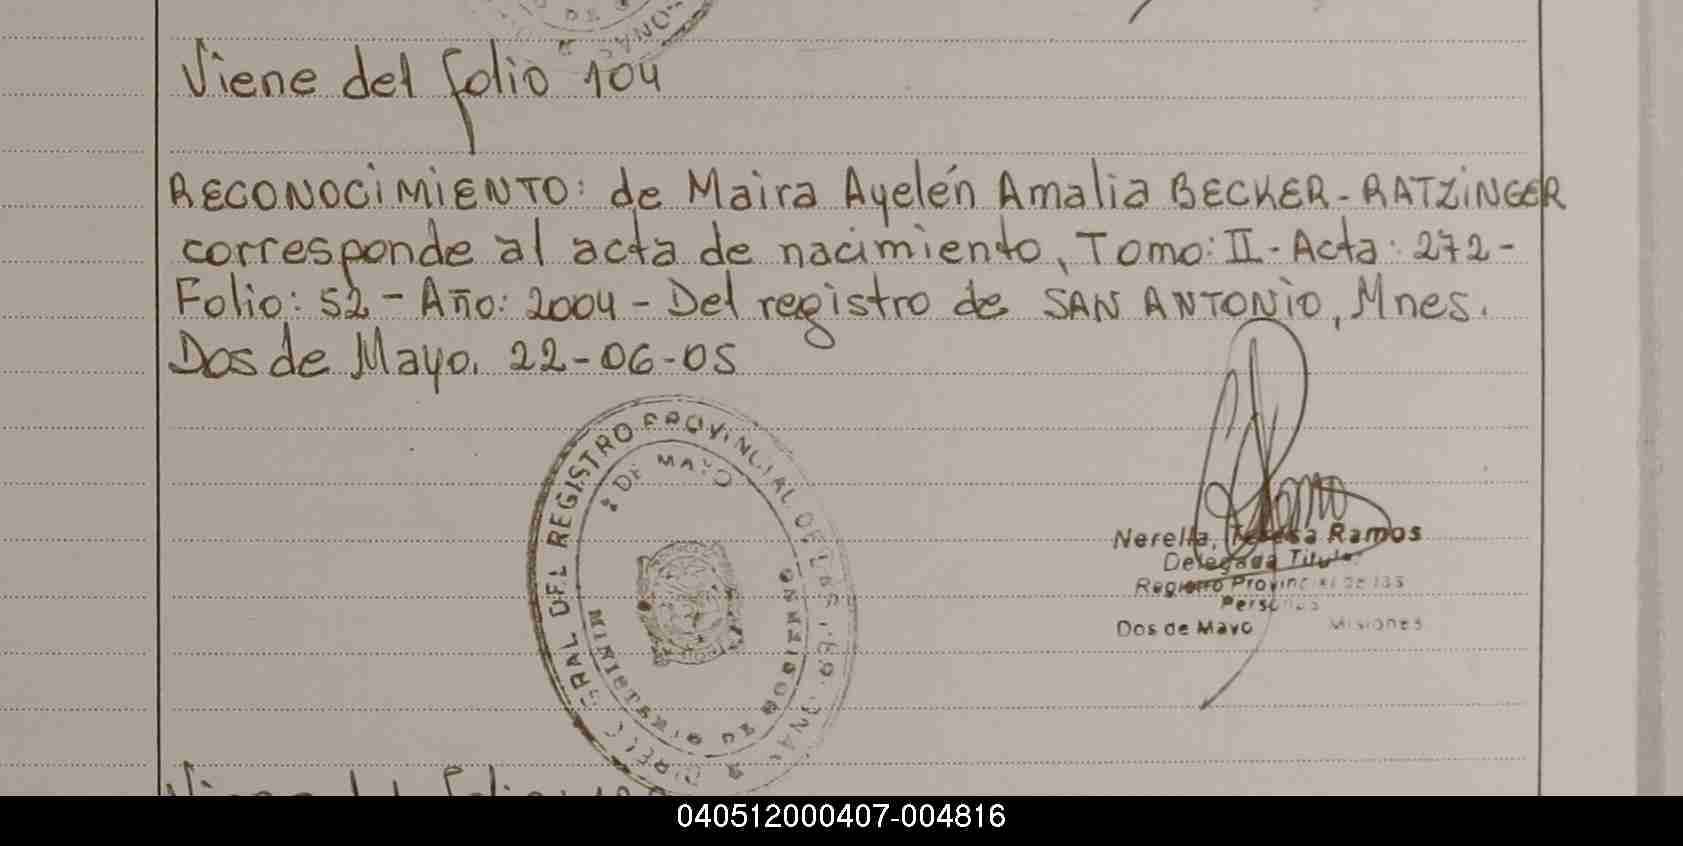 Viene del folio 104
RECONOCIMIENTO: de Maira Ayelén Amalia BECKER-RATZINGER
corresponde al acta de nacimiento, Tomo: II - Acta: 272 -
Folio: 52 - Año: 2004 - Del registro de SAN ANTONIO, Mnes.
Dos de Mayo, 22-06-05
GRAL DEL REGISTRO PROVINCIAL DE LAS PERSONAS
2 DE MAYO
MINISTERIO DE GOBIERNO
Nerella, Teresa Ramos
Delegada Titular
Registro Provincial de las
Personas
Dos de Mayo Misiones
Viene del folio
040512000407-004816